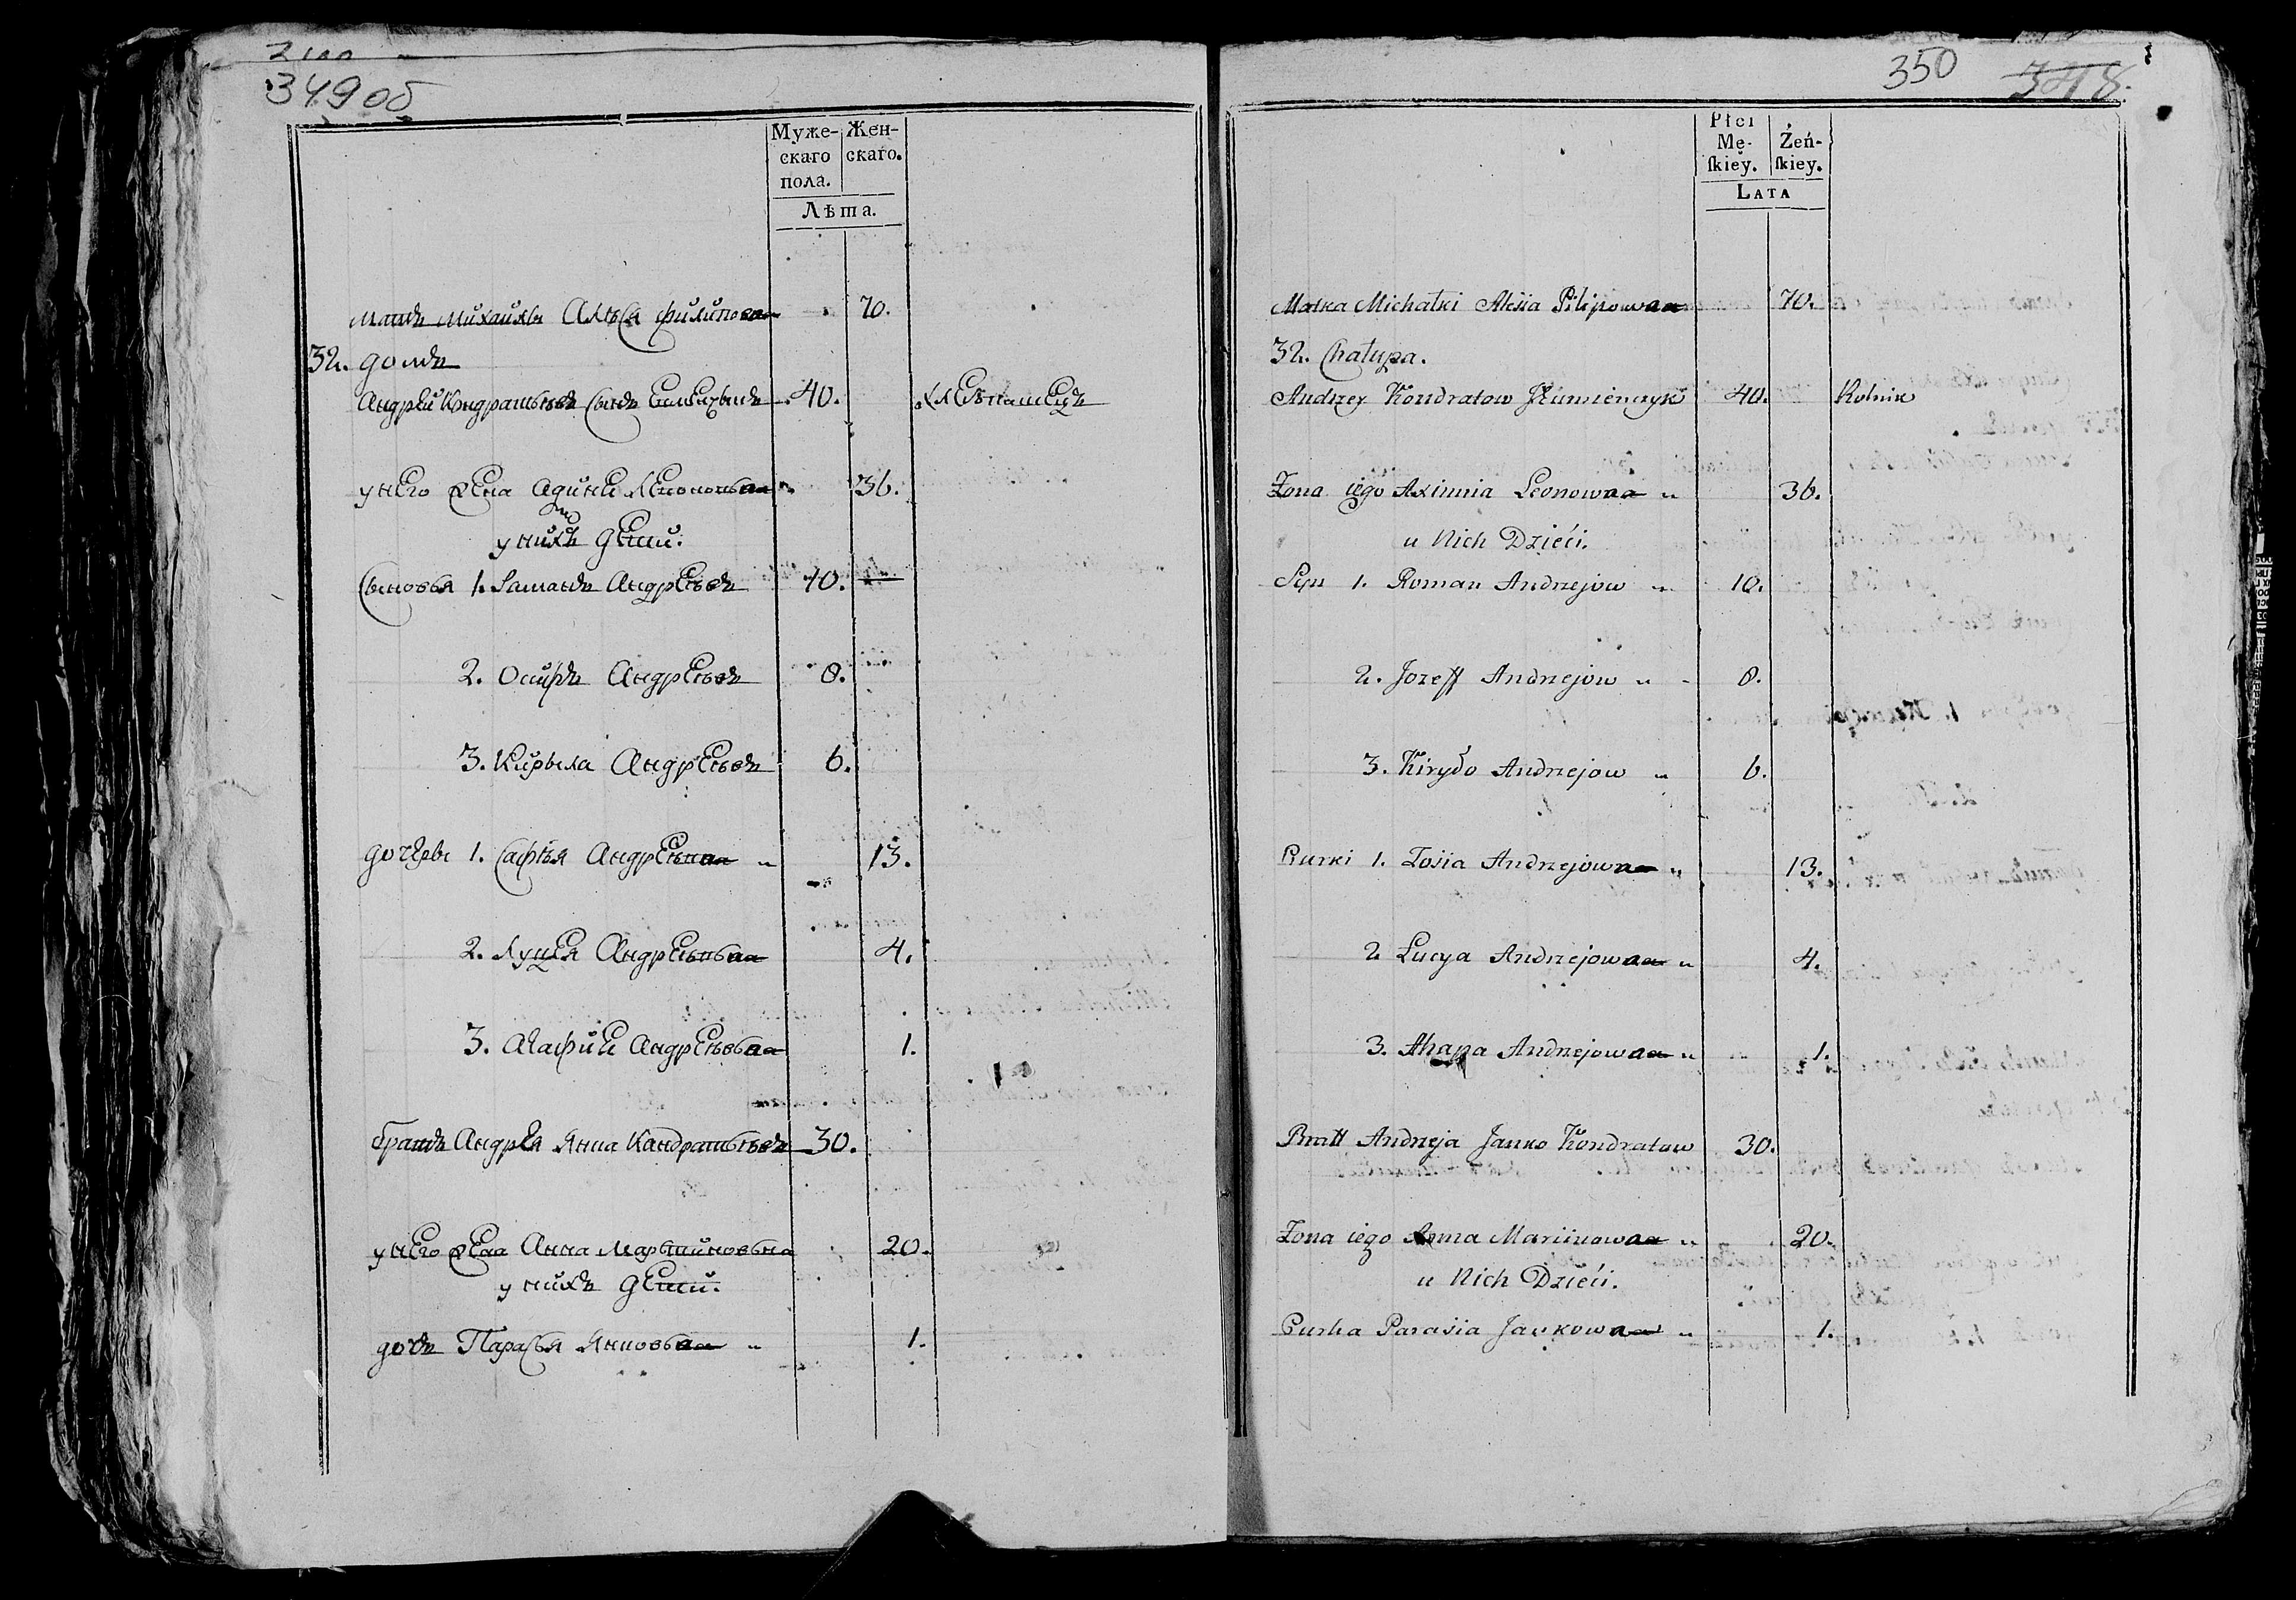 349 об
Муже-
скаго
пола.
Жен-
скаго.
Лѣта.
мать Михайлы Алѣся Филипова 70.
32. домъ
Андрей Кондратьевъ сынъ 40. хлебпашецъ
у него жена Леоновна 36.
у нихъ дети.
Сыновья 1. Раманъ Андреевъ 10.
2. Осипъ Андреевъ 8.
3. Кирыла Андреевъ 6.
дочеры 1. Сафья Андреевна 13.
2. Луцея Андреевна 4.
3. Агафия Андреевна 1.
братъ Андрея Янка Кандратьевъ 30.
у него жена Анна Мартиновна 20.
у нихъ дети.
дочь Парасья Янковна 1.
350 348.
Płci
Mę-
ſkiey.
Żeń-
ſkiey.
LATA
Matka Michałki Alesia Pilipowna 70.
32. Chałupa.
Andrzey Kondratow 40. Rolnik
Żona iego Aximia Leonowna 36.
u Nich Dzieći.
Syn 1. Roman Andrzejow 10.
2. Jozeff Andrzejow 8.
3. Kiryło Andrzejow 6.
Curki 1. Zosia Andrzejowna 13.
2 Łucya Andrzejowna 4.
3. Ahapa Andrzejowna 1.
Bratt Andrzeja Janko Kondratow 30.
Żona iego Anna Marcinowna 20.
u Nich Dzieći.
Curka Parasia Jankowna 1.